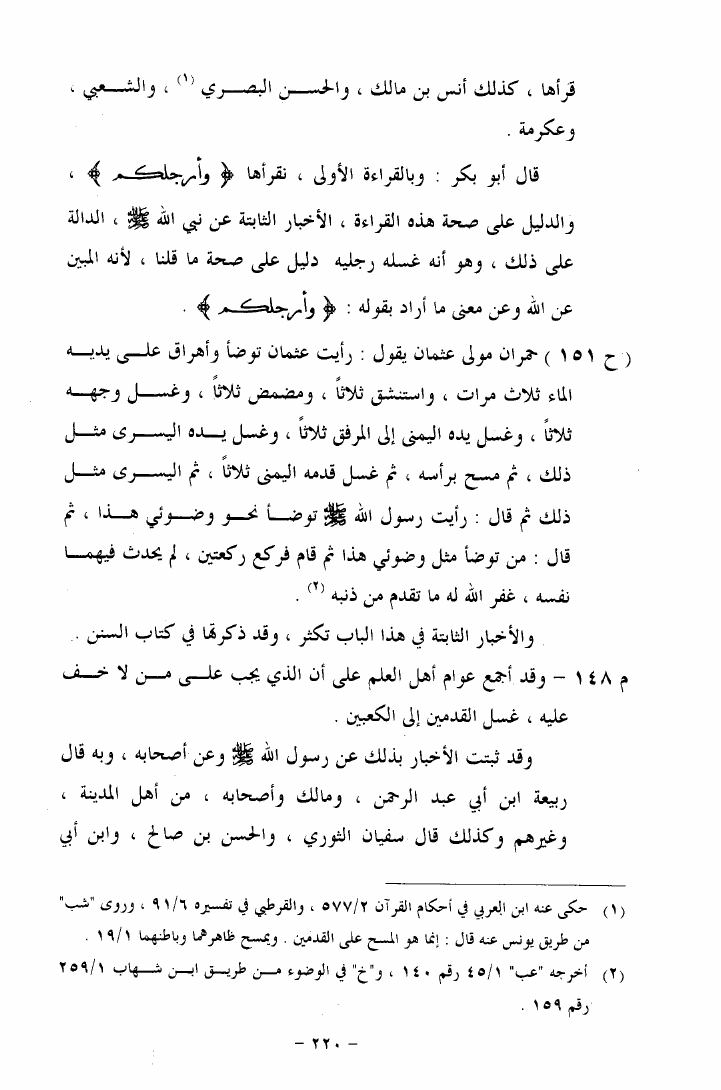 قرأها ، كذلك أنس بن مالك ، والحسن البصري (١) ، والشعبي ،
وعكرمة .
قال أبو بكر : وبالقراءة الأولى ، نقرأها ﴿ وأرجلكم ﴾ ،
والدليل على صحة هذه القراءة ، الأخبار الثابتة عن نبي الله ﷺ ، الدالة
على ذلك ، وهو أنه غسله رجليه دليل على صحة ما قلنا ، لأنه المبين
عن الله وعن معنى ما أراد بقوله : ﴿ وأرجلكم ﴾ .
( ح ١٥١ ) حمران مولى عثمان يقول : رأيت عثمان توضأ وأهراق على يديه
الماء ثلاث مرات ، واستنشق ثلاثاً ، ومضمض ثلاثاً ، وغسل وجهه
ثلاثاً ، وغسل يده اليمنى إلى المرفق ثلاثاً ، وغسل يده اليسرى مثل
ذلك ، ثم مسح برأسه ، ثم غسل قدمه اليمنى ثلاثاً ، ثم اليسرى مثل
ذلك ثم قال : رأيت رسول الله ﷺ توضأ نحو وضوئي هذا ، ثم
قال : من توضأ مثل وضوئي هذا ثم قام فركع ركعتين ، لم يحدث فيهما
نفسه ، غفر الله له ما تقدم من ذنبه (٢) .
والأخبار الثابتة في هذا الباب تكثر ، وقد ذكرتها في كتاب السنن .
م ١٤٨ – وقد أجمع عوام أهل العلم على أن الذي يجب على من لا خف
عليه ، غسل القدمين إلى الكعبين .
وقد ثبتت الأخبار بذلك عن رسول الله ﷺ وعن أصحابه ، وبه قال
ربيعة ابن أبي عبد الرحمن ، ومالك وأصحابه ، من أهل المدينة ،
وغيرهم وكذلك قال سفيان الثوري ، والحسن بن صالح ، وابن أبي
(١) حكى عنه ابن العربي في أحكام القرآن ٥٧٧/٢ ، والقرطبي في تفسيره ٩١/٦ ، وروى "شب"
من طريق يونس عنه قال : إنما هو المسح على القدمين . ويمسح ظاهرهما وباطنهما ١٩/١ .
(٢) أخرجه "عب" ٤٥/١ رقم ١٤٠ ، و"خ" في الوضوء من طريق ابن شهاب ٢٥٩/١
رقم ١٥٩ .
– ٢٢٠ –